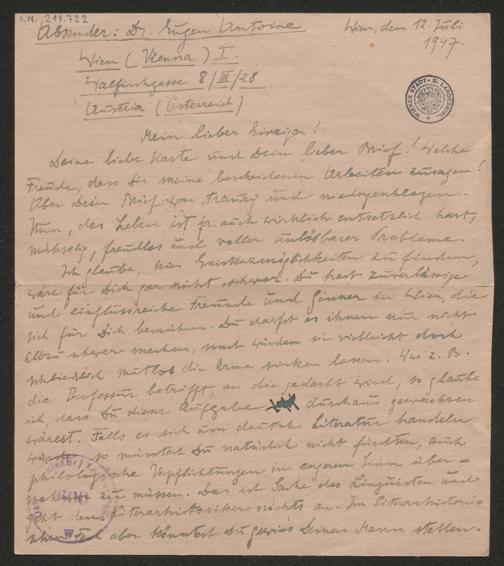 I.N. 219.722
Absender: Dr. Eugen Antoine
Wien, den 12. Juli
1947.
Wien (Vienna) I.
Walfischgasse 8/III/28
Austria (Österreich)
WIENER STADT- U.
Mein lieber
Deine liebe Karte und Dein lieber Brief! Welche
Freude, dass Dir meine bescheidenen Arbeiten zusagen!
Aber Dein Brief war traurig und niedergeschlagen.
Nun, das Leben ist ja auch wirklich entsetzlich hart,
mühselig, freudlos und voller unlösbarer Probleme.
Ich glaube, hier Existenzmöglichkeiten zu finden,
wäre für Dich gar nicht schwer. Du hast zuverlässige
und einflussreiche Freunde und Gönner in Wien, die
sich für Dich bemühen. Du darfst es ihnen nur nicht
allzu schwer machen, sonst würden sie vielleicht doch
schliesslich mutlos die Arme sinken lassen. Was z. B.
die Professur betrifft, an die gedacht wird, so glaube
ich, dass Du dieser Aufgabe durchaus gewachsen
wärest. Falls es sich um deutsche Literatur handeln
würde, so müsstest Du natürlich nicht fürchten, auch
philologische Verpflichtungen im engeren Sinn über-
nehmen zu müssen. Das ist Sache des Linguisten und
geht den Literarhistoriker nichts an. Im literarhistori-
schen aber könntest Du gewiss Deinen Mann stellen.